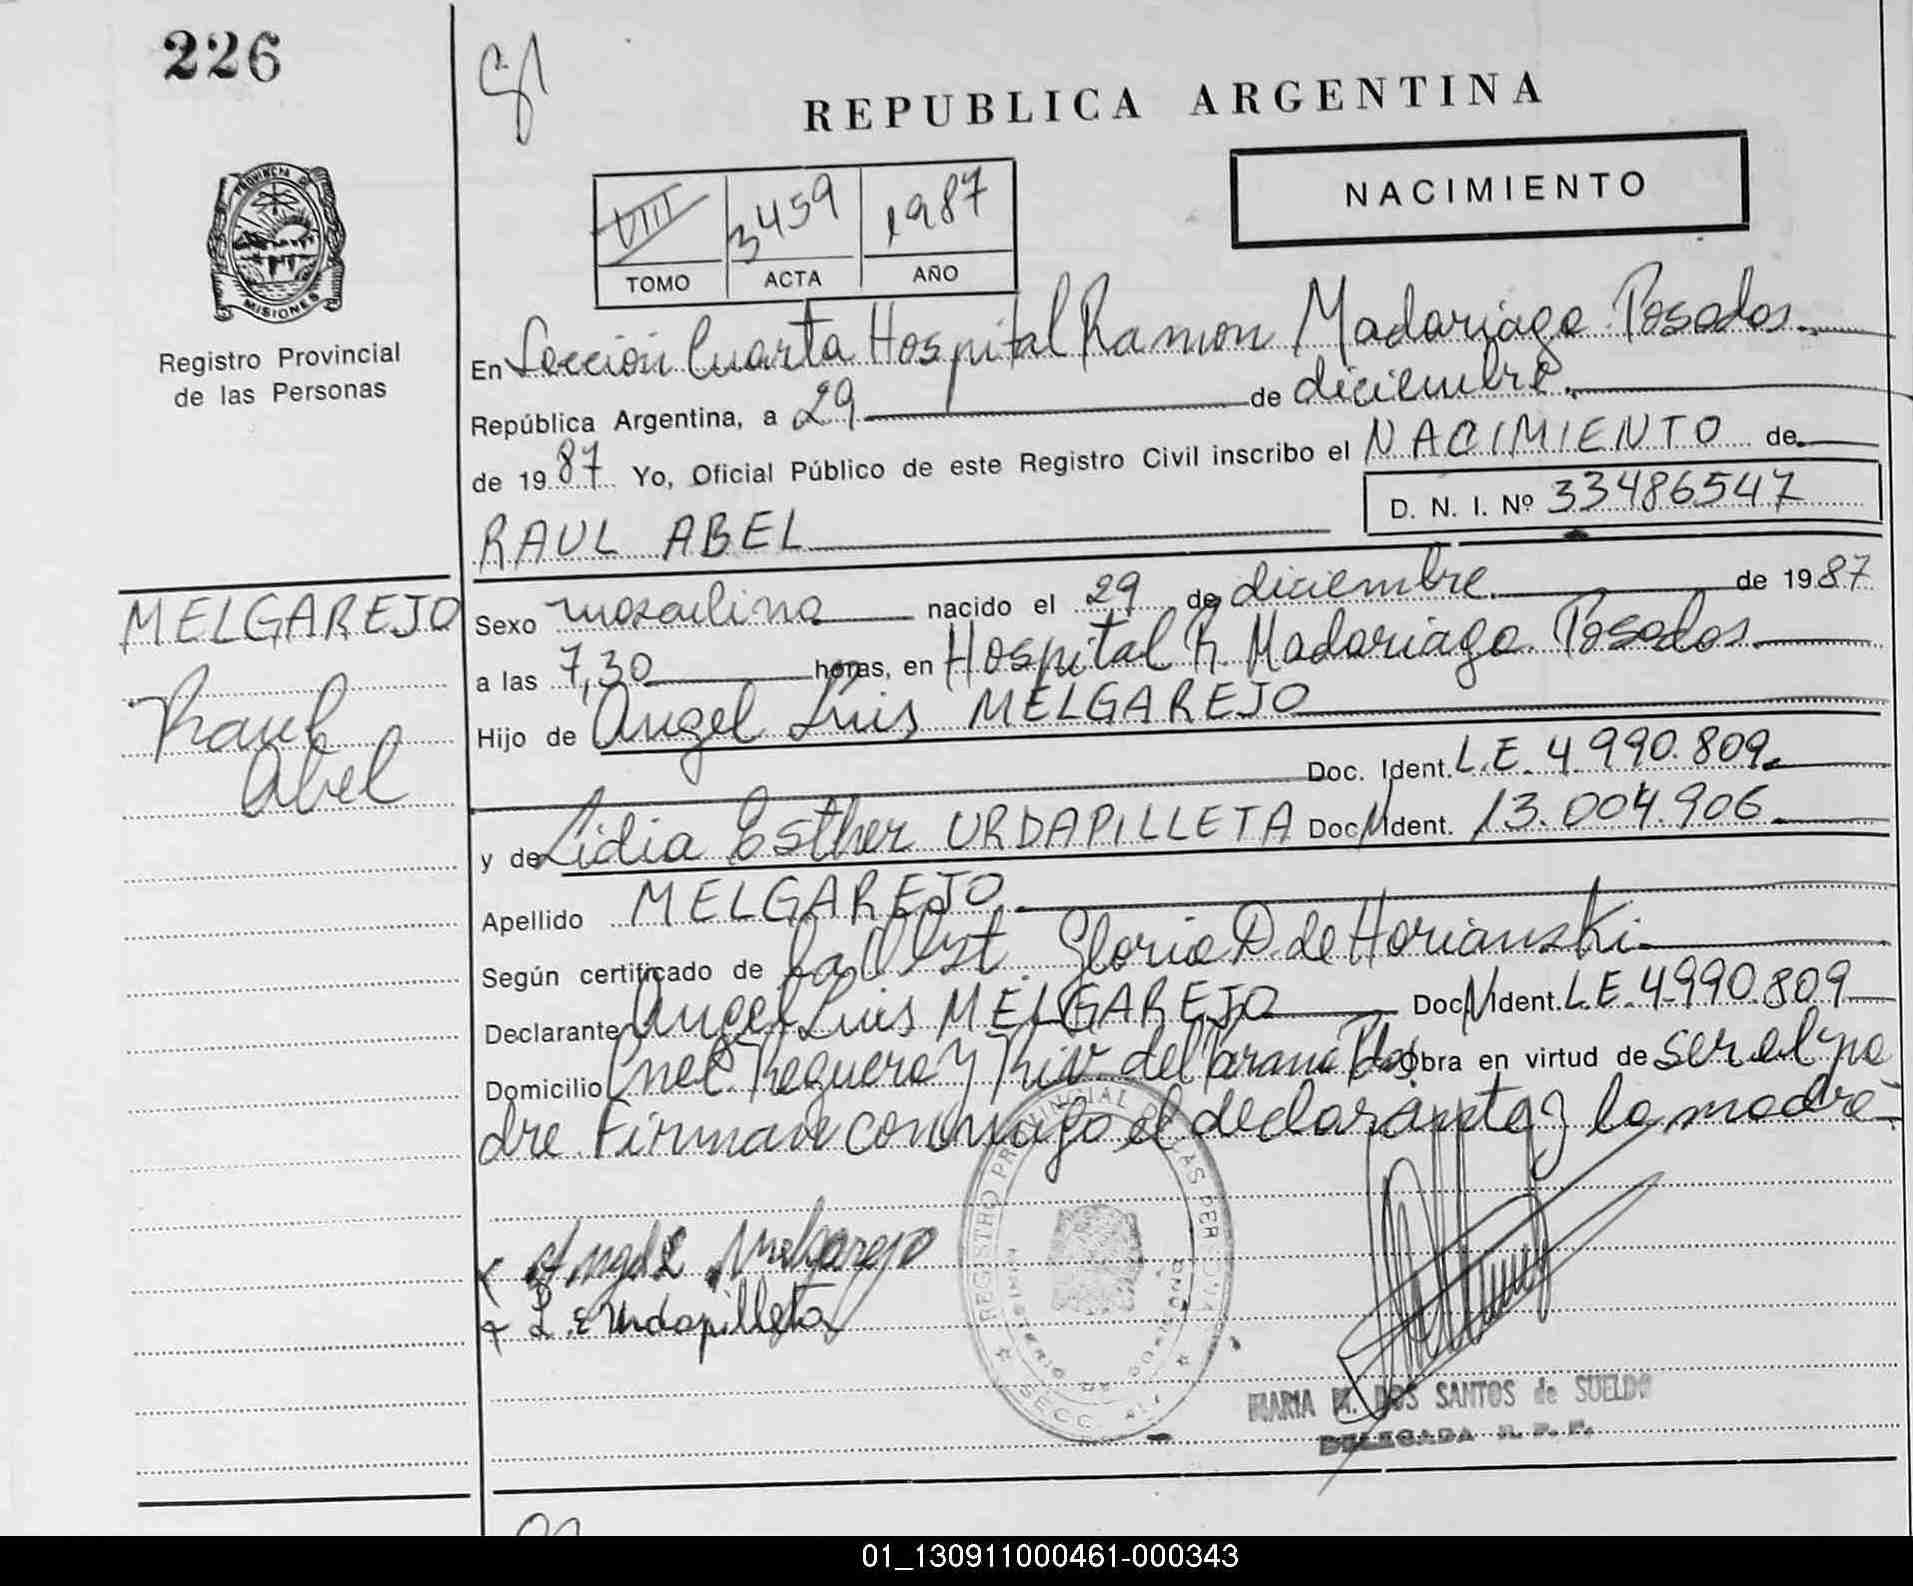 226
REPUBLICA ARGENTINA
NACIMIENTO
VIII 3459 1987
TOMO ACTA AÑO
PROVINCIA DE
MISIONES
Registro Provincial
de las Personas
En Sección Cuarta Hospital Ramon Madariaga Posadas
República Argentina, a 29 de diciembre
de 1987 Yo, Oficial Público de este Registro Civil inscribo el NACIMIENTO de
D. N. I. Nº 33486547
RAUL ABEL
MELGAREJO
Raul
Abel
Sexo masculino nacido el 29 de diciembre de 1987
a las 7,30 horas, en Hospital R. Madariaga Posadas
Hijo de Angel Luis MELGAREJO
Doc. Ident. L.E. 4.990.809
y de Lidia Esther URDAPILLETA Doc. Ident. 13.004.906
Apellido MELGAREJO
Según certificado de la Obst. Gloria D. de Horianski
Declarante Angel Luis MELGAREJO Doc. Ident. L.E. 4.990.809
Domicilio Cnel. Reguera y Riv. del Parana Pdas Obra en virtud de ser el pa
dre Firman conmigo el declarante y la madre
Angel L Melgarejo
L. E Urdapilleta
REGISTRO PROVINCIAL DE LAS PERSONAS
MARIA M. DOS SANTOS de SUELDO
DELEGADA R. P. P.
01_130911000461-000343